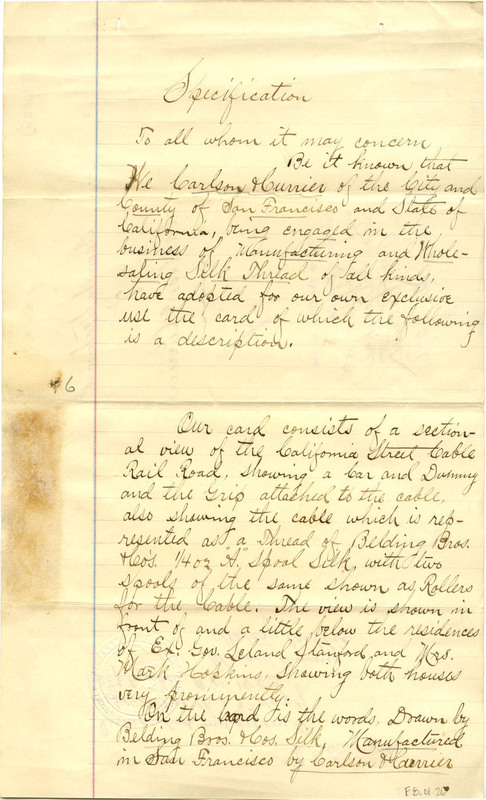 Specification
To all whom it may concern
Be it known that
We Carlson & Currier of the City and
County of San Francisco and State of
California, being engaged in the
business of Manufacturing and Whole-
saling Silk Thread of all kinds,
have adopted for our own exclusive
use the card of which the following
is a description.
46
Our card consists of a section-
al view of the California Street Cable
Rail Road, showing a Car and Dummy
and the Grip attached to the cable,
also showing the cable which is rep-
resented as a Thread of Belding Bros.
& Co's. 1/4 oz "A" Spool Silk, with two
Spools of the same shown as Rollers
for the Cable. The view is shown in
front of and a little below the residences
of Ex. Gov. Leland Stanford and Mrs.
Mark Hopkins, showing both houses
very prominently.
On the card is the words, Drawn by
Belding Bros. & Cos. Silk, Manufactured
in San Francisco by Carlson & Currier